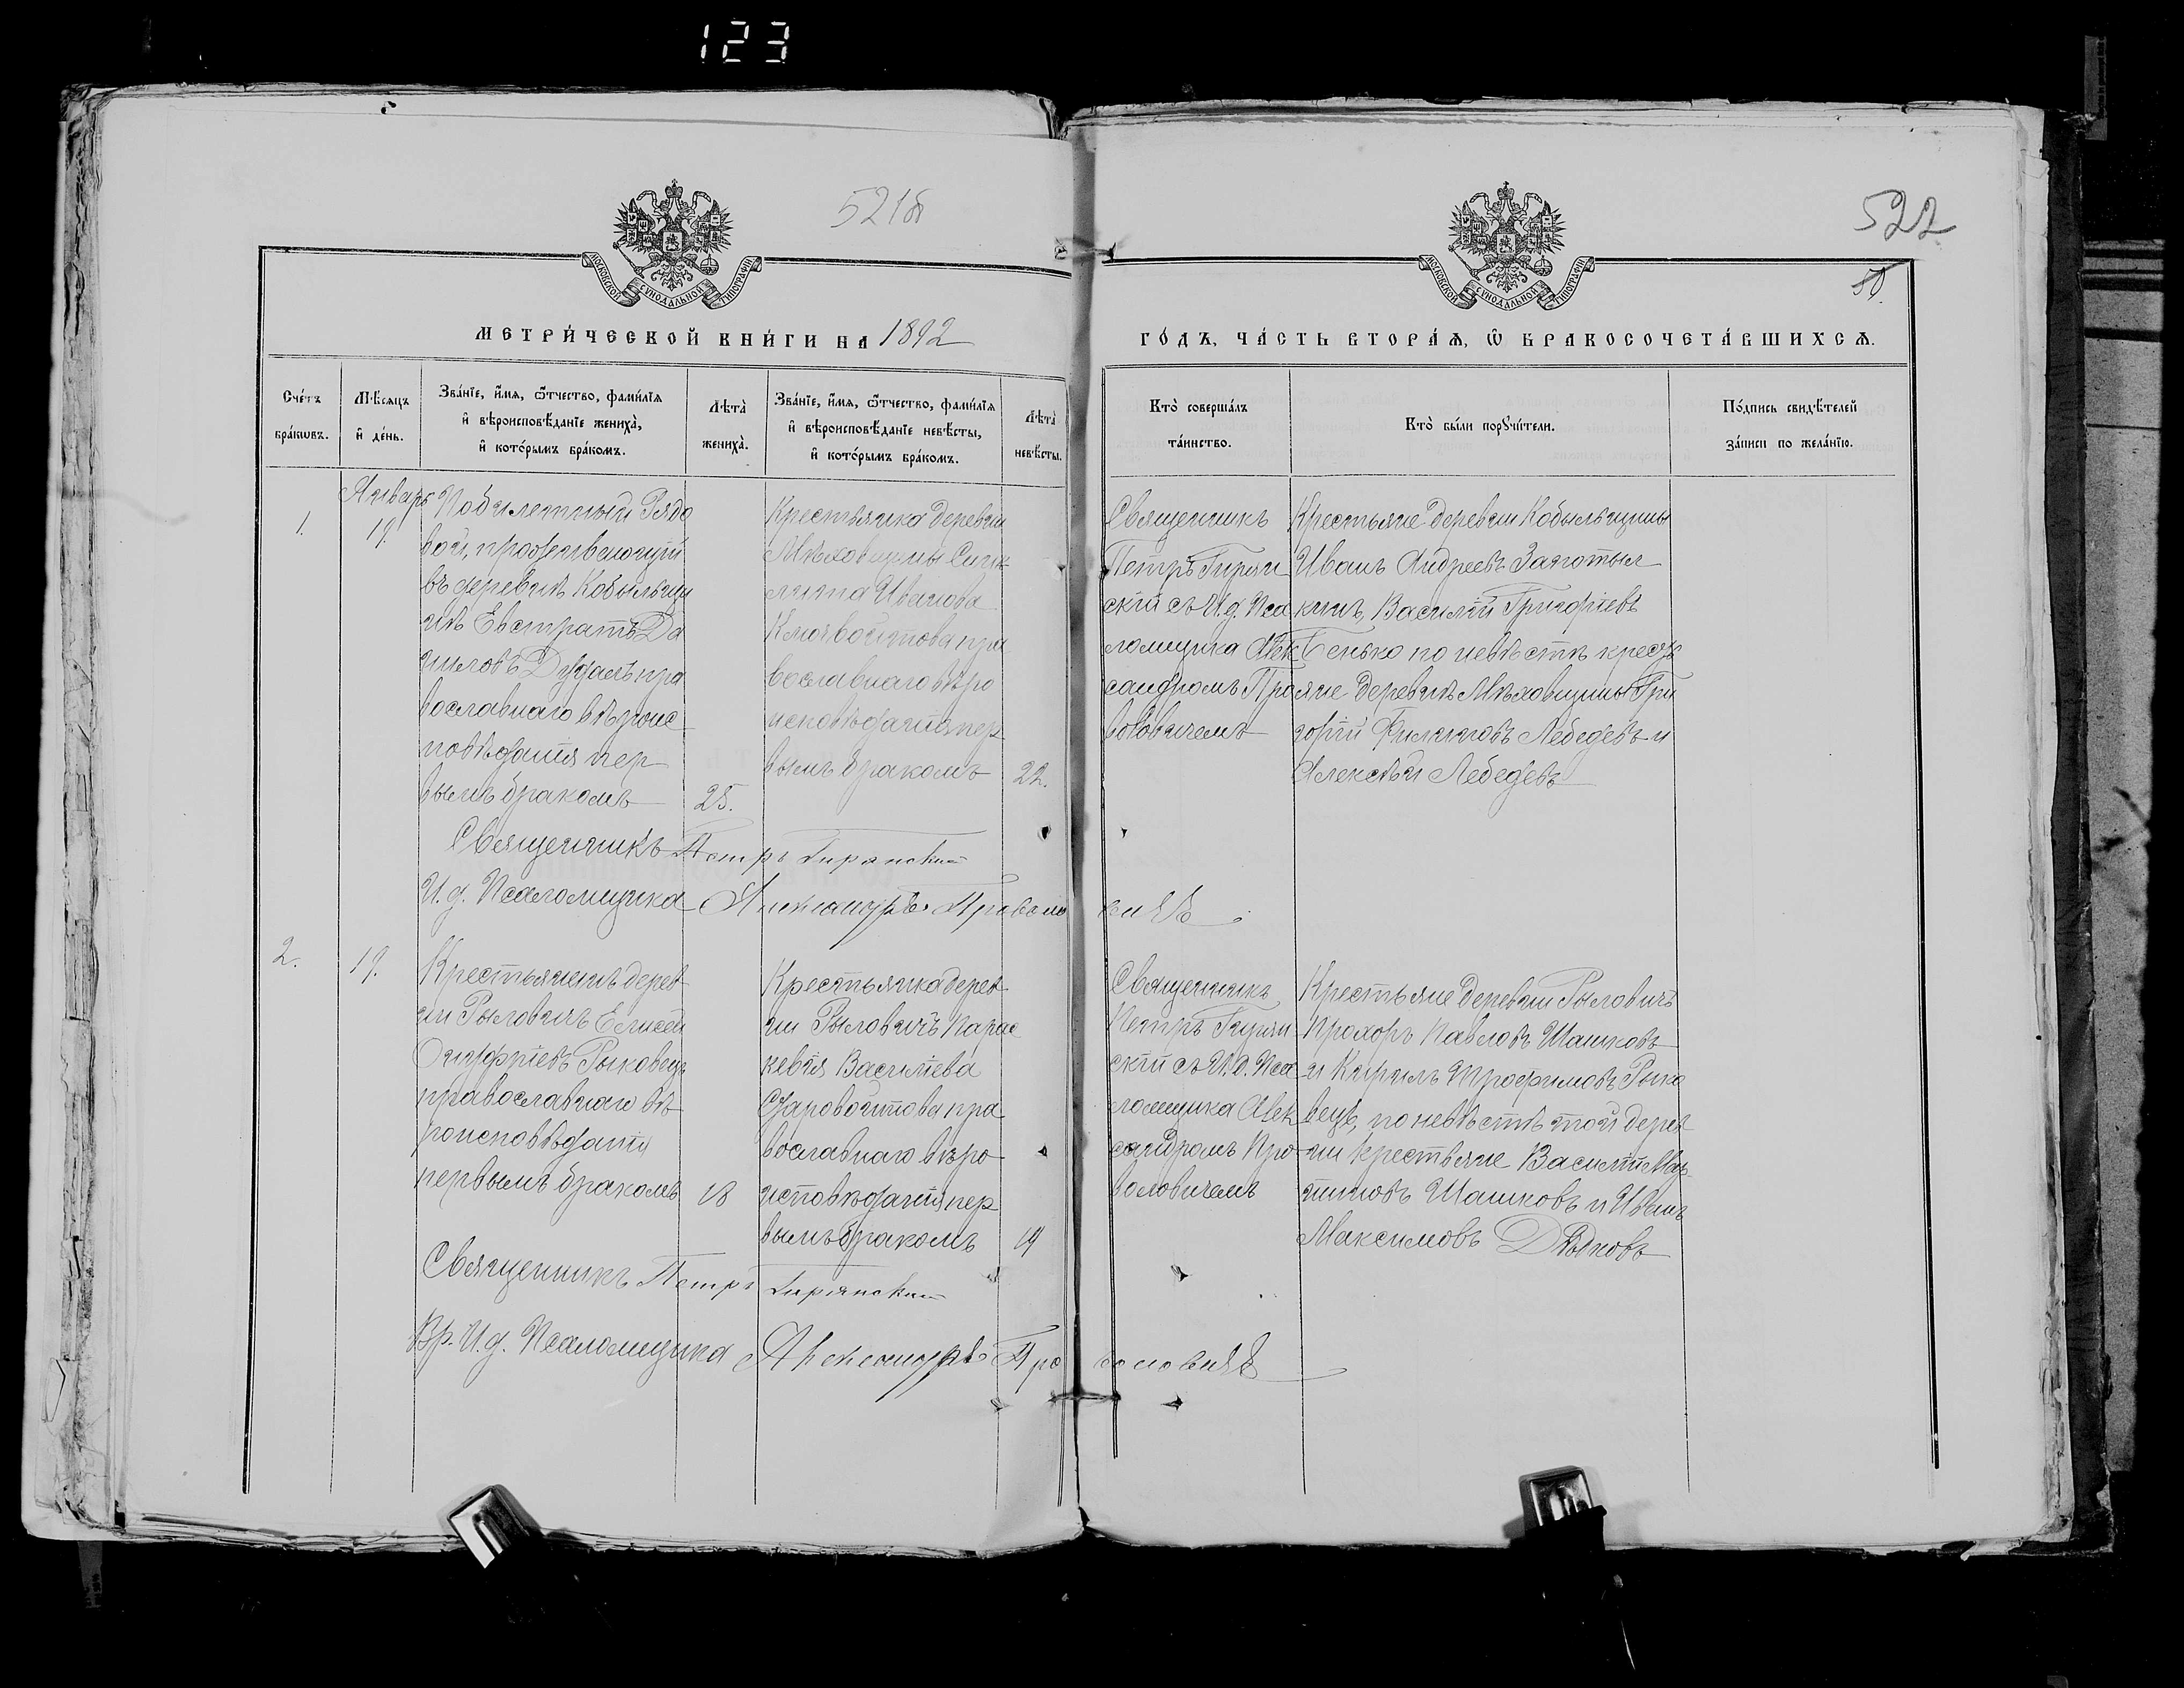 123
521б
522
50.
МОСКОВСКОЙ СѴНОДАЛЬНОЙ ТИПОГРАФІИ
МОСКОВСКОЙ СѴНОДАЛЬНОЙ ТИПОГРАФІИ
МЕТРИ́ЧЕСКОЙ КНИ́ГИ НА 1892
ГО́ДЪ, ЧА́СТЬ ВТОРА́Ѧ, Ѿ БРАКОСОЧЕТА́ВШИХСѦ.
Сче́тъ бра́кѡвъ.
Мѣ́сяцъ и҆ де́нь.
Зва́нїе, и҆́мя, ѻ҆́тчество, фами́лїя
и҆ вѣроисповѣ́данїе жениха̀,
и҆ кото́рымъ бра́комъ.
Лѣта̀ жениха̀.
Зва́нїе, и҆́мя, ѻ҆́тчество, фами́лїя
и҆ вѣроисповѣ́данїе невѣ́сты,
и҆ кото́рымъ бра́комъ.
Лѣта̀ невѣ́сты.
Кто̀ соверша́лъ та́инство.
Кто̀ бы́ли порꙋчи́тели.
По́дпись свидѣ́телей за́писи по жела́нїю.
1.
Январь
19.
Побилетный Рядо
вой, проживающій
въ деревнѣ Кобыльщи
нѣ Евстратъ Да
ниловъ Дудаль пра
вославнаго вѣроис
повѣданія пер
вымъ бракомъ
25.
Крестьянка деревни
Мѣховщины Синк
литта Иванова
Ключвоитова пра
вославнаго вѣро
исповѣданія пер
вымъ бракомъ
22.
Священникъ
Петръ Гирян
скій съ И.д. Пса
ломщика Алек
сандромъ Про
воловичемъ
Крестьяне деревни Кобыльщины
Иванъ Андреевъ
Василій Григоріевъ
Сенько по невѣстѣ кресть
яне деревнѣ Мѣховщины Гри
горій Филиповъ Лебедевъ и
Алексѣй Лебедевъ
Священникъ Петръ Гирянскій
И. д. Псаломщика Александръ Проволо
вичъ
2.
19.
Крестьянинъ дерев
ни Рыловичъ Елисей
Онуфріевъ Рыковец
православнаго вѣ
роисповѣданія
первымъ бракомъ
18
Крестьянка дерев
ни Рыловичъ Парас
кевія Василіева
Старовоитова пра
вославнаго вѣро
исповѣданія пер
вымъ бракомъ
19
Священникъ
Петръ Гирян
скій съ И.д. Пса
ломщика Алек
сандромъ Про
воловичемъ
Крестьяне деревни Рыловичъ
Прохоръ Павловъ Шашковъ
и Кирилъ Трофимовъ Рыко
вецъ, по невѣстѣ той дерев
ни крестьяне Василій Мар
тиновъ Шашковъ и Иванъ
Максимовъ Дѣдковъ
Священникъ Петръ Гирянскій
Вр. И.д. Псаломщика Александръ Про
воловичъ